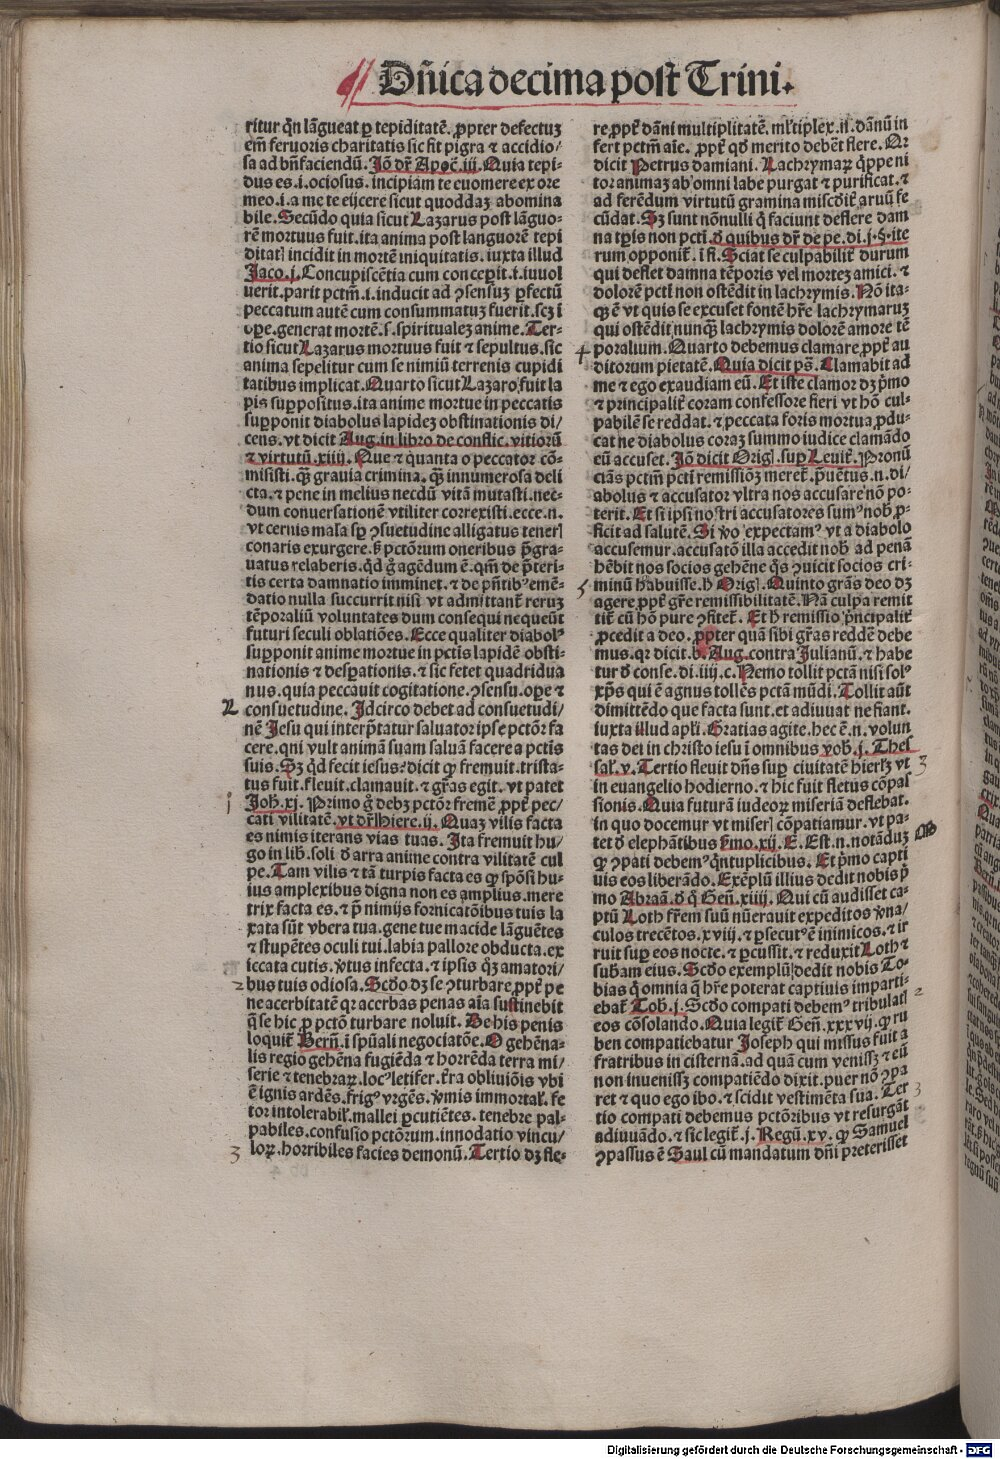 Dñica decima post Trini.
ritur qñ lãgueat ꝑ tepiditatẽ. ꝓpter defectuꝫ
em̃ feruoris charitatis sic fit pigra ⁊ accidio/
sa ad bñfaciendũ. Jõ dr̃ Apoc̃. iij. Quia tepi-
dus es .i. ociosus. incipiam te euomere ex ore
meo .i. a me te eijcere sicut quoddaꝫ abomina
bile. Secũdo quia sicut Lazarus post lãguo-
rẽ mortuus fuit. ita anima post languorẽ tepi
ditatꝭ incidit in mortẽ iniquitatis. iuxta illud
Jaco. j. Concupiscẽtia cum conceperit .i. iuuol
uerit. parit pctm̃ .i. inducit ad ꝯsensuꝫ ꝑfectũ
peccatum autẽ cum consummatuꝫ fuerit. scꝫ ĩ
oꝑe. generat mortẽ .s. spiritualeꝫ anime. Ter-
tio sicut Lazarus mortuus fuit ⁊ sepultus. sic
anima sepelitur cum se nimiũ terrenis cupidi
tatibus implicat. Quarto sicut Lazaro fuit la
pis suꝑpositus. ita anime mortue in peccatis
suꝑponit diabolus lapideꝫ obstinationis di/
cens. vt dicit Aug. in libro de conflic. vitiorũ
⁊ virtutũ. xiiij. Que ⁊ quanta o peccator cõ-
misisti. q̃ꝫ grauia crimina. q̃ꝫ innumerosa deli
cta. ⁊ pene in melius necdũ vitã mutasti. nec-
dum conuersationẽ vtiliter correxisti. ecce .n.
vt cernis mala sꝑ ꝯsuetudine alligatus tenerꝭ
conaris exurgere. sꝫ pctõrum oneribus p̃gra-
uatus relaberis. qd g̊ agẽdum ẽ. qm̃ de p̃teri-
tis certa damnatio imminet. ⁊ de p̃ntibꝰ emẽ-
datio nulla succurrit nisi vt admittant᷑ reruꝫ
tẽporaliũ voluntates dum consequi nequeũt
futuri seculi oblatiões. Ecce qualiter diabolꝰ
suꝑponit anime mortue in pctis lapidẽ obsti-
nationis ⁊ desꝑationis. ⁊ sic fetet quadridua
nus. quia peccauit cogitatione. ꝯsensu. oꝑe ⁊
consuetudine. Idcirco debet ad consuetudi/
nẽ Jesu qui interp̃tatur saluator ipse pctõr fa
cere. qui vult animã suam saluã facere a pctis
suis. Sꝫ qd fecit iesus: dicit ꝙ fremuit. trista-
tus fuit. fleuit. clamauit. ⁊ gr̃as egit. vt patet
Joh. xj. Primo g̊ debꝫ pctõr fremẽ ꝓpt᷑ pec/
cati vilitatẽ. vt dr̃ Hiere. ij. Quaꝫ vilis facta
es nimis iterans vias tuas. Ita fremuit hu/
go in lib. soli. d̓ arra anime contra vilitatẽ cul
pe. Tam vilis ⁊ tã turpis facta es ꝙ spõsi hu-
ius amplexibus digna non es amplius. mere
trix facta es. ⁊ p̃ nimijs fornicatõibus tuis la
xata sũt vbera tua. gene tue macide lãguẽtes
⁊ stupẽtes oculi tui. labia pallore obducta. ex
iccata cutis. ỽtus infecta. ⁊ ipsis qꝫ amatori/
bus tuis odiosa. Scdo dꝫ se ꝯturbare ꝓpt᷑ pe
ne acerbitatẽ qꝛ acerbas penas aĩa sustinebit
q̃ se hic ꝓ pctõ turbare noluit. De his penis
loquit᷑ Bern̄. ĩ spũali negociatõe. O gehẽna-
lis regio gehẽna fugiẽda ⁊ horrẽda terra mi/
serie ⁊ tenebraꝝ. locꝰ letifer. t᷑ra obliuiõis vbi
ẽ ignis ardẽs. frigꝰ vrgẽs. ỽmis immortal᷑. fe
tor intolerabil᷑. mallei ꝑcutiẽtes. tenebre pal-
pabiles. confusio pctõrum. innodatio vincu/
loꝝ. horribiles facies demonũ. Tertio dꝫ fle-
L
j
2
3
re ꝓpt᷑ dãni multiplicitatẽ. ml̓tiplex .n. dãnũ in
fert pctm̃ aĩe. ꝓpt᷑ qd merito debẽt flere. Nr
dicit Petrus damiani. Lachrymaꝝ qꝑpe ni
tor animaꝫ ab omni labe purgat ⁊ purificat. ⁊
ad ferẽdum virtutũ gramina misc̃dit᷑ aruũ fe
cũdat. Sꝫ sunt nõnulli q̇ faciunt deflere dam
na tꝑis non pcti. d̓ quibus dr̃ de pe. di. j. §. ite
rum opponit᷑. ĩ fi. Sciat se culpabilit᷑ durum
qui deflet damna tẽporis vel morteꝫ amici. ⁊
dolorẽ pcti non ostẽdit in lachrymis. Nõ ita-
qꝫ ẽ vt quis se excuset fontẽ hr̃e lachrymaruꝫ
qui ostẽdit nunq̃ꝫ lachrymis dolorẽ amore tẽ
poralium. Quarto debemus clamare ꝓpt᷑ au
ditorum pietatẽ. Quia dicit ps̃. Clamabit ad
me ⁊ ego exaudiam eũ. Et iste clamor dꝫ p̃mo
⁊ principalit᷑ coram confessore fieri vt hõ cul-
pabilẽ se reddat. ⁊ peccata foris mortua ꝓdu-
cat ne diabolus coraꝫ summo iudice clamãdo
eũ accuset. Jõ dicit Origꝭ. suꝑ Leuit᷑. Pronũ
ciãs pctm̃ pcti remissiõꝫ meret᷑. p̃uẽtus .n. di/
abolus ⁊ accusator vltra nos accusare nõ po-
terit. Et si ipsi nostri accusatores sumꝰ nob ꝓ-
ficit ad salutẽ. Si ỽo expectamꝰ vt a diabolo
accusemur. accusatõ illa accedit nob ad penã
hẽbit nos socios gehẽne q̊s ꝯuicit socios cri-
minũ habuisse. h̓ Origꝭ. Quinto gr̃as deo dꝫ
agere ꝓpt᷑ gr̃e remissibilitatẽ. Nã culpa remit
tit᷑ cũ hõ pure ꝯfitet᷑. Et h̓ remissio p̃ncipalit᷑
ꝓcedit a deo. ꝓpter quã sibi gr̃as reddẽ debe
mus. qꝛ dicit b. Aug. contra Julianũ. ⁊ habe
tur d̓ conse. di. iiij. c. Nemo tollit pctã nisi solꝰ
xp̃s qui ẽ agnus tollẽs pctã mũdi. Tollit aũt
dimittẽdo que facta sunt. et adiuuat ne fiant.
iuxta illud apl̓i. Gratias agite. hec ẽ .n. volun
tas dei in christo iesu ĩ omnibus vob. j. Thes
sal᷑. v. Tertio fleuit dñs suꝑ ciuitatẽ hierlꝫ vt
in euangelio hodierno. ⁊ hic fuit fletus cõpas
sionis. Quia futurã iudeoꝝ miseriã deflebat.
in quo docemur vt miserꝭ cõpatiamur. vt pa-
tet d̓ elephãtibus p̃mo. xij. E. Est .n. notãduꝫ
ꝙ ꝯpati debemꝰ qntuplicibus. Et p̃mo capti
uis eos liberãdo. Exẽplũ illius dedit nobis p̃
mo Abraã. d̓ q̊ Gen̄. xiiij. Qui cũ audisset ca-
ptũ Loth fr̃em suũ nũerauit expeditos ỽna/
culos trecẽtos. xviij. ⁊ ꝑsecutꝰ ẽ inimicos. ⁊ ir
ruit suꝑ eos nocte. ⁊ ꝑcussit. ⁊ reduxit Loth ⁊
subam eius. Scdo exemplũ dedit nobis To-
bias q̇ omnia q̃ hr̃e poterat captiuis imparti-
ebat᷑ Tob. j. Scdo compati debemꝰ tribulatꝭ
eos cõsolando. Quia legit᷑ Gen̄. xxxvij. ꝙ ru
ben compatiebatur Joseph qui missus fuit a
fratribus in cisternã. ad quã cum venissꝫ ⁊ eũ
non inuenissꝫ compatiẽdo dixit. puer nõ ꝯpa
ret ⁊ quo ego ibo. ⁊ scidit vestimẽta sua. Ter
tio compati debemus pctõribus vt resurgãt
adiuuãdo. ⁊ sic legit᷑. j. Regũ. xv. ꝙ Samuel
ꝯpassus ẽ Saul cũ mandatum dñi preterisset
4
5
3
M
2
3
Digitalisierung gefördert durch die Deutsche Forschungsgemeinschaft - DFG